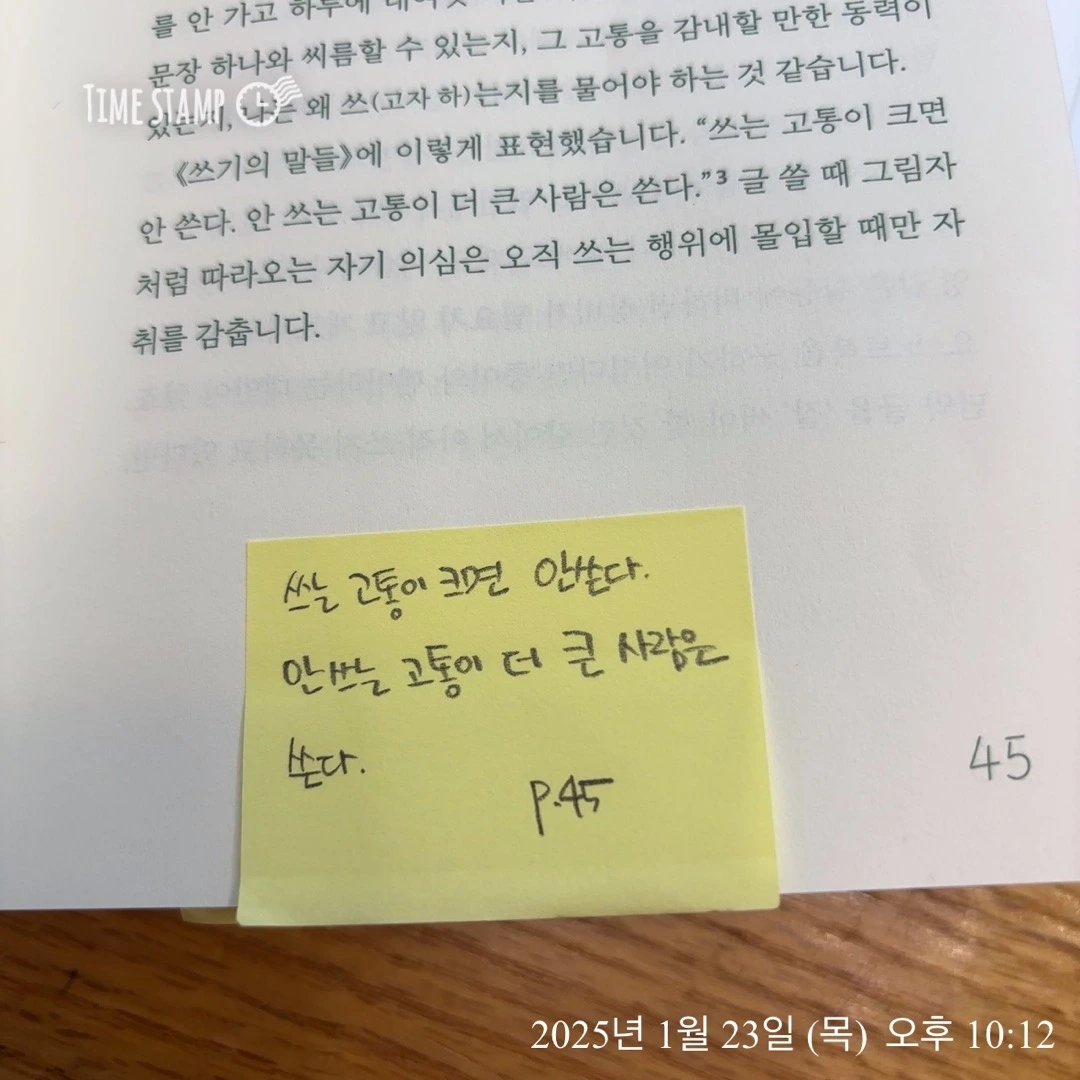 를 안 가고 하루에
문장 하나와 씨름할 수 있는지, 그 고통을 감내할 만한 동력이
TIME STAMP
있는지, 나는 왜 쓰(고자 하)는지를 물어야 하는 것 같습니다.
《쓰기의 말들》에 이렇게 표현했습니다. “쓰는 고통이 크면
안 쓴다. 안 쓰는 고통이 더 큰 사람은 쓴다.”³ 글 쓸 때 그림자
처럼 따라오는 자기 의심은 오직 쓰는 행위에 몰입할 때만 자
취를 감춥니다.
쓰는 고통이 크면 안쓴다.
안쓰는 고통이 더 큰 사람은
쓴다.
p.45
45
2025년 1월 23일 (목) 오후 10:12